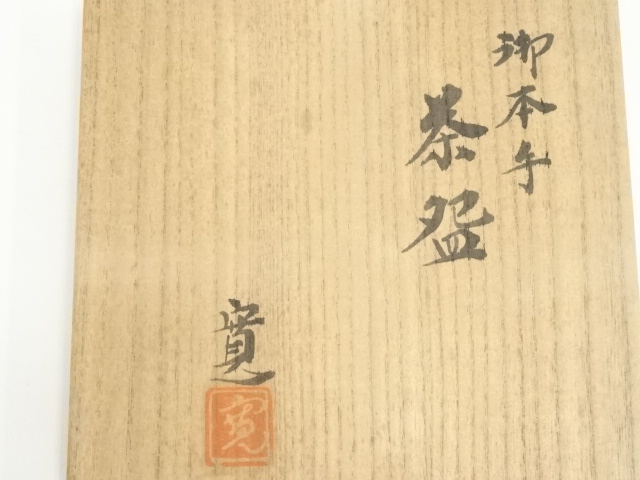 御本手
茶盌
寛
寛